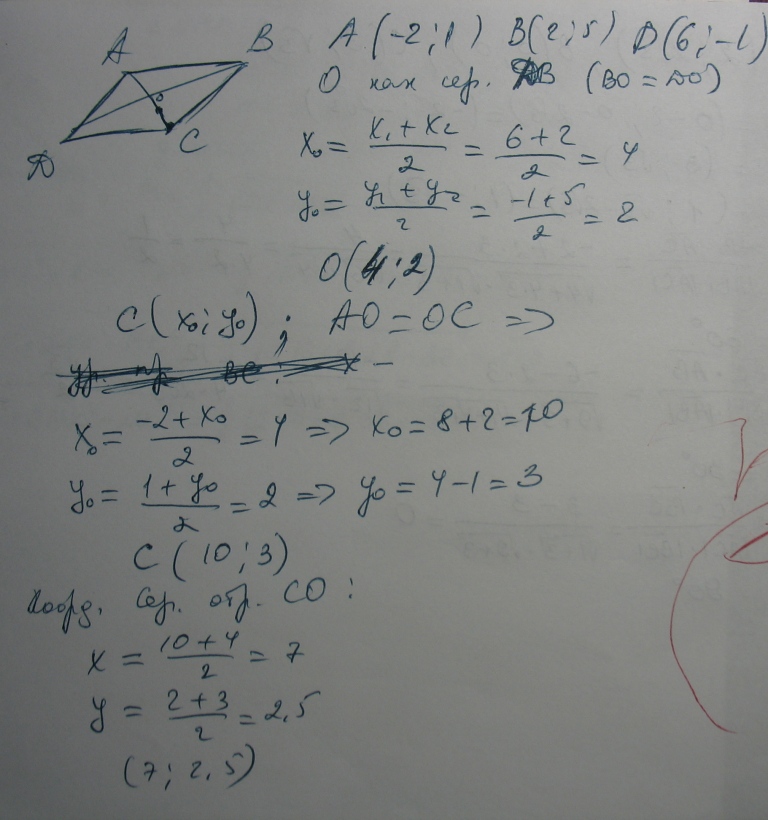 A B
D C
o
A (-2; 1) B(2; 5) D(6; -1)
O как сер. DB (BO = DO)
x₀ = (x₁ + x₂)/2 = (6 + 2)/2 = 4
y₀ = (y₁ + y₂)/2 = (-1 + 5)/2 = 2
O(4; 2)
C(x₀; y₀); AO = OC =>
x₀ = (-2 + x₀)/2 = 4 => x₀ = 8 + 2 = 10
y₀ = (1 + y₀)/2 = 2 => y₀ = 4 - 1 = 3
C(10; 3)
Коорд. сер. отр. CO:
x = (10 + 4)/2 = 7
y = (2 + 3)/2 = 2,5
(7; 2,5)